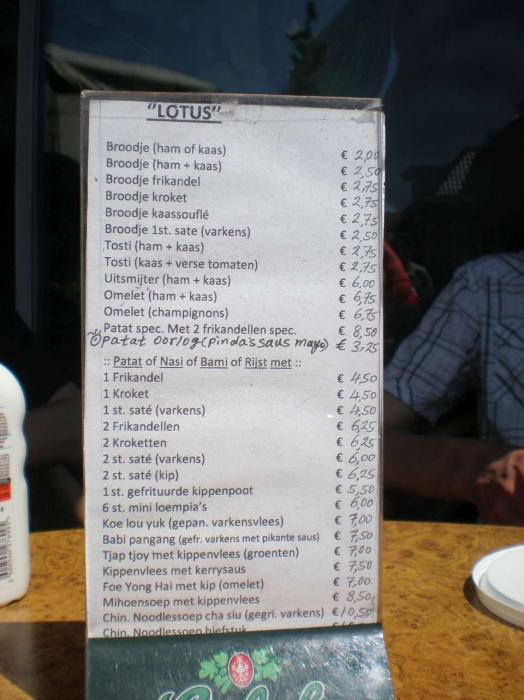 "LOTUS"
Broodje (ham of kaas) € 2,00
Broodje (ham + kaas) € 2,50
Broodje frikandel € 2,75
Broodje kroket € 2,75
Broodje kaassouflé € 2,75
Broodje 1st. sate (varkens) € 2,50
Tosti (ham + kaas) € 2,75
Tosti (kaas + verse tomaten) € 2,75
Uitsmijter (ham + kaas) € 6,00
Omelet (ham + kaas) € 6,75
Omelet (champignons) € 6,75
Patat spec. Met 2 frikandellen spec. € 8,50
Patat oorlog (pinda'ssaus mayo) € 3,25
:: Patat of Nasi of Bami of Rijst met ::
1 Frikandel € 4,50
1 Kroket € 4,50
1 st. saté (varkens) € 4,50
2 Frikandellen € 6,25
2 Kroketten € 6,25
2 st. saté (varkens) € 6,00
2 st. saté (kip) € 6,25
1 st. gefrituurde kippenpoot € 5,50
6 st. mini loempia's € 6,00
Koe lou yuk (gepan. varkensvlees) € 7,00
Babi pangang (gefr. varkens met pikante saus) € 7,50
Tjap tjoy met kippenvlees (groenten) € 7,00
Kippenvlees met kerrysaus € 7,50
Foe Yong Hai met kip (omelet) € 7,00
Mihoensoep met kippenvlees € 8,50
Chin. Noodlessoep cha siu (gegri. varkens) € 10,50
Chin. Noodlessoep biefstuk